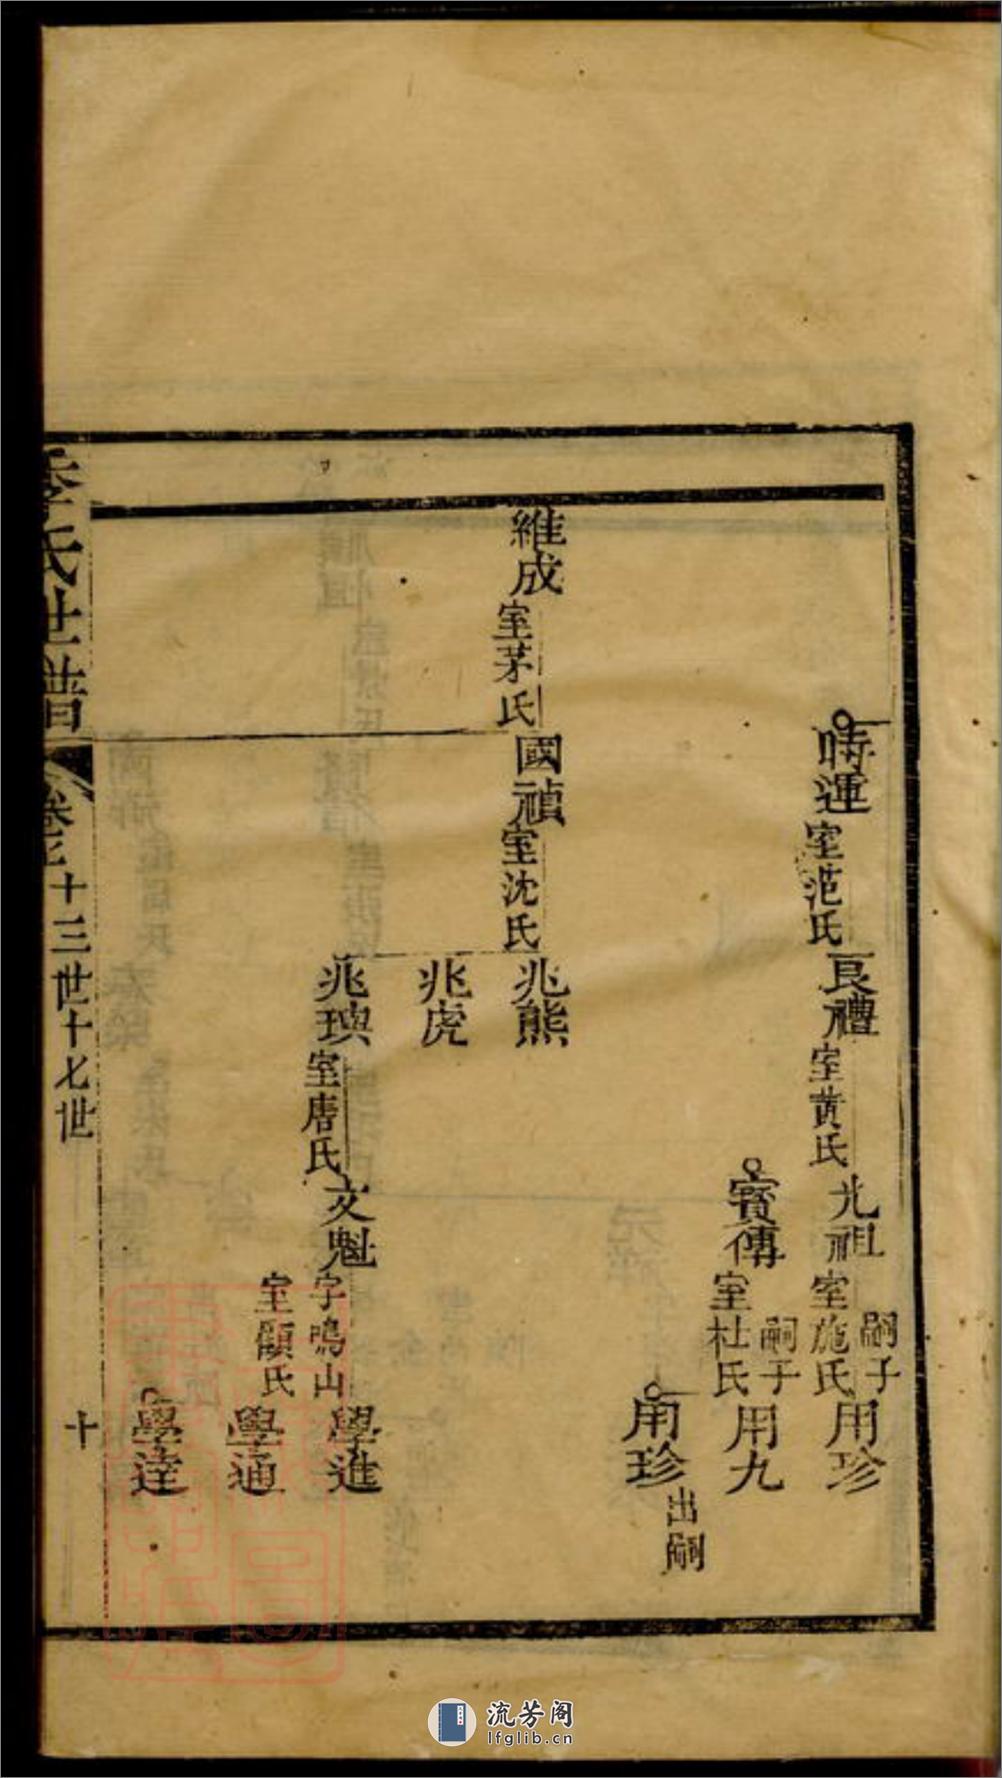 時運室范氏
良禮室黄氏
光祖室施氏
嗣子
用珍
寳傳室杜氏
嗣子
用九
用珍出嗣
維成室茅氏
國禎室沈氏
兆熊
兆虎
兆璵室唐氏
文魁字鳴山
室顧氏
學進
學通
學達
氏世譜
卷三
十三世十七世
十
流芳阁
lfglib.cn